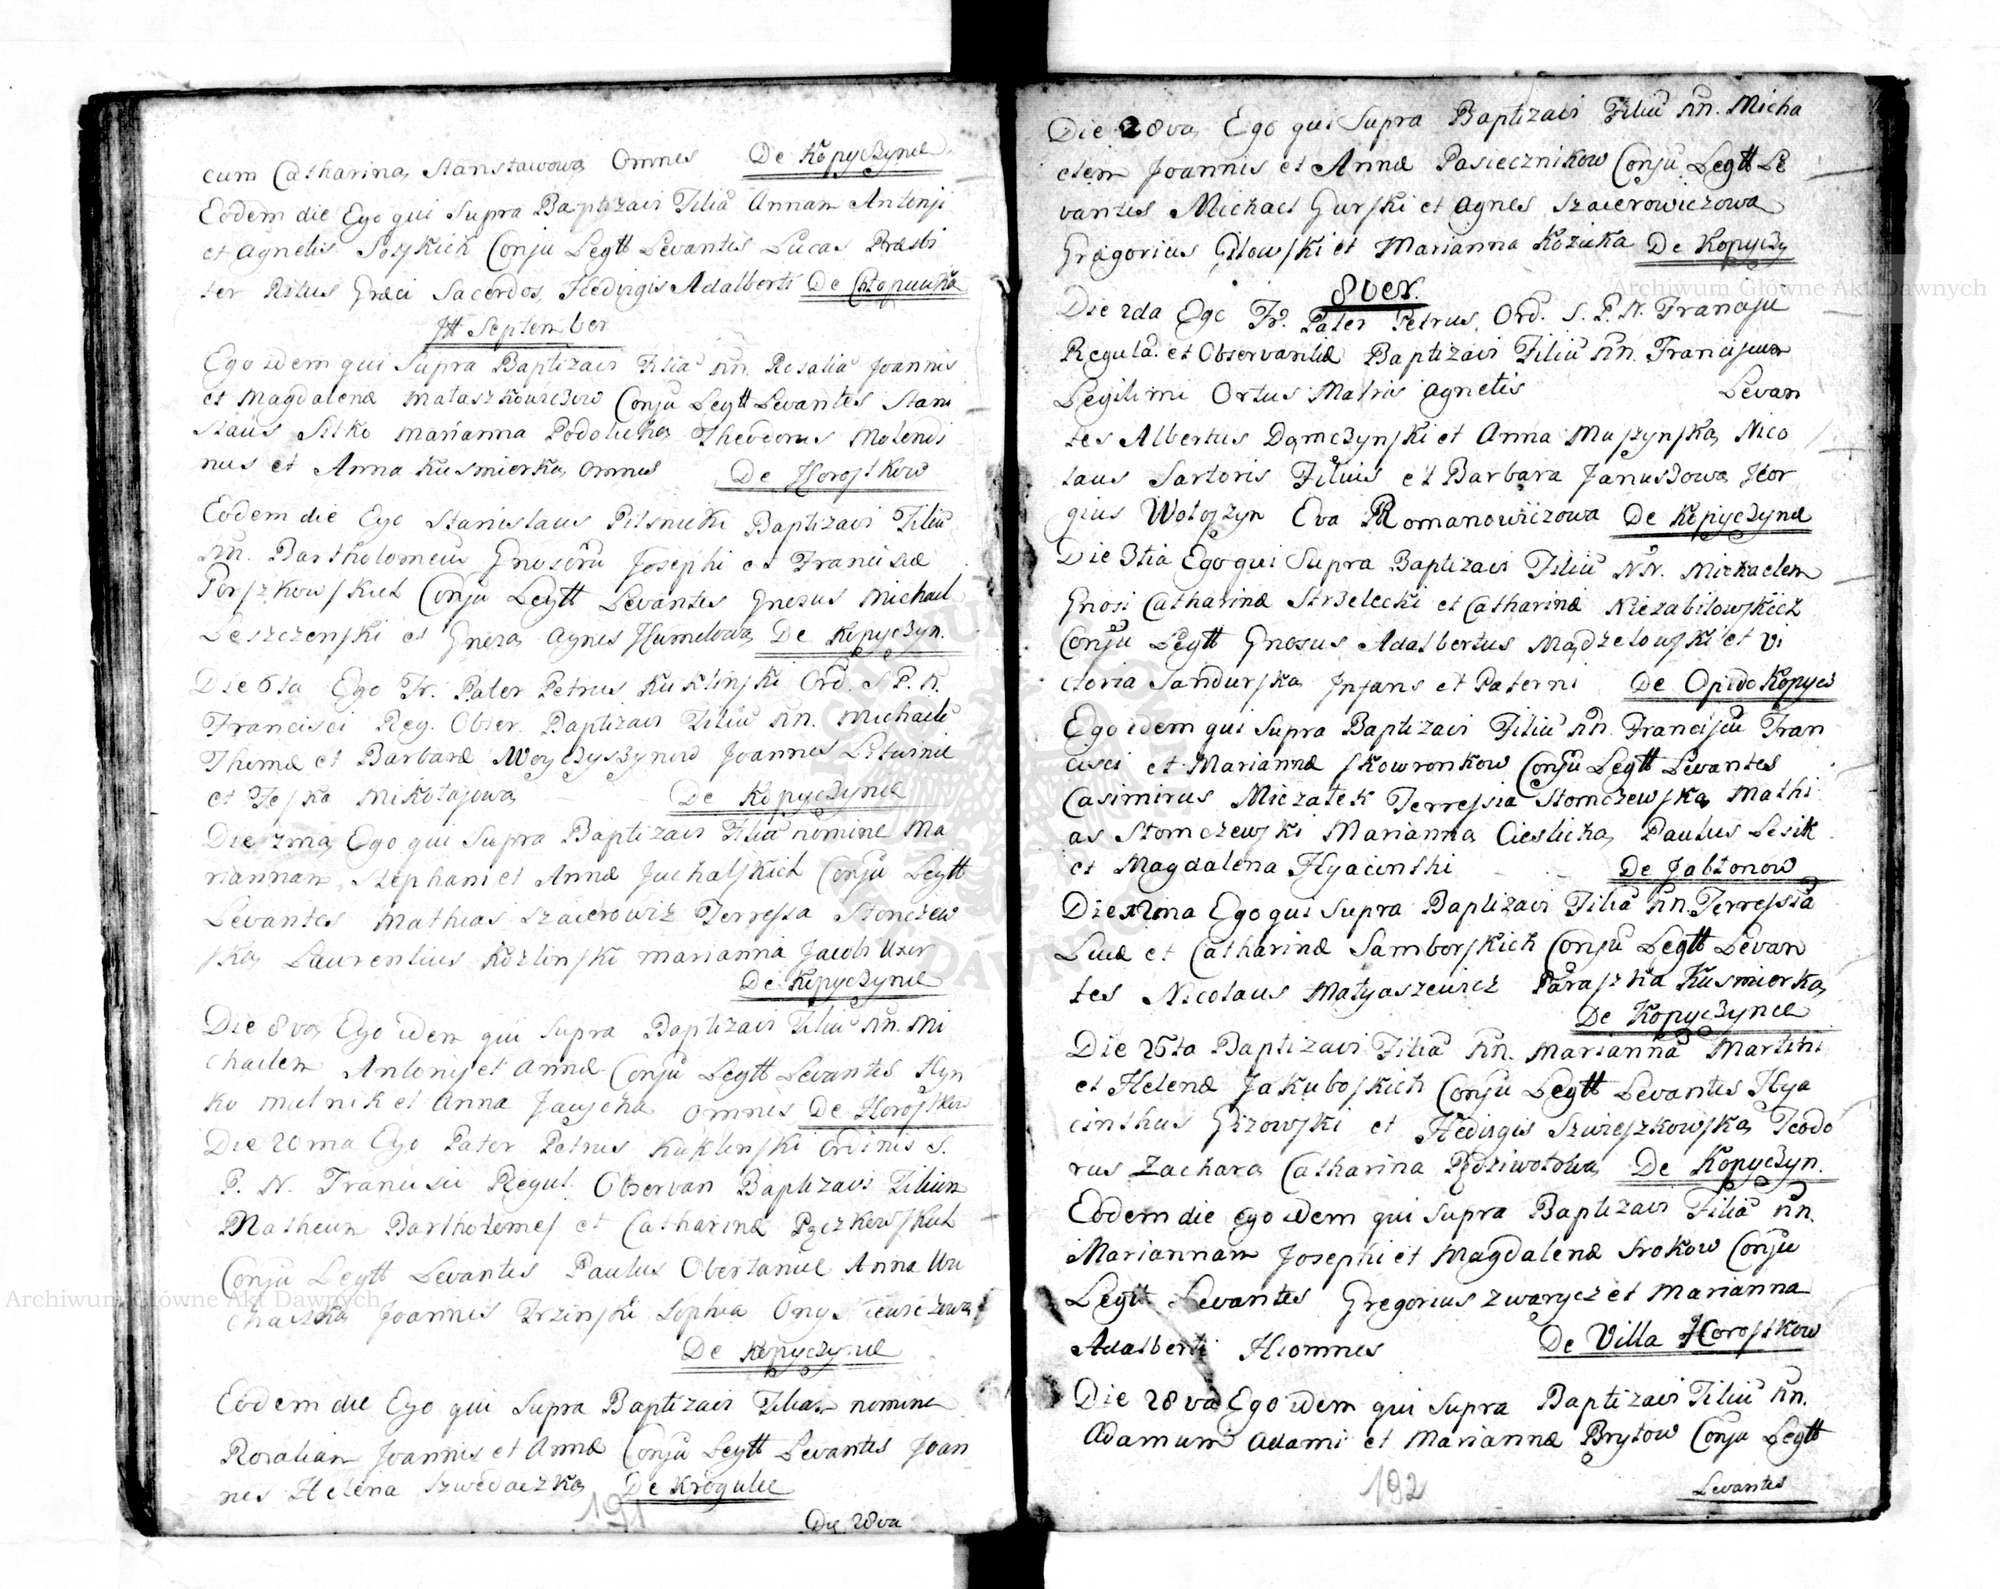 cum Catharina Stanisławowa Omnes De Kopyczynce
Eodem die Ego qui Supra Baptizavi Filiã Annam Antonji
et Agnetis Conju Legtt Levantes Lucas Præsbi
ter Ritus Græci Sacerdos, Hedvigis Adalberti De
September
Ego idem qui Supra Baptizavi Filiã nn. Rosaliã Joannis
et Magdalenæ Mataszkowiczow Conju Legtt Levantes Stani
slaus Sitko Marianna Podolucka Theodorus Molendi
nus et Anna Kusmierka omnes De Horostkow
Eodem die Ego Stanislaus Pilsnicki Baptizavi Filiũ
nn. Bartholomeũ Josephi et Franciscæ
Conju Legtt Levantes Michael
Leszczenski et Agnes Humelowa De Kopyczyn.
Die 6ta Ego Fr. Pater Petrus Kuklinski Ord. S P. N.
Francisci Reg. Obser. Baptizavi Filiũ nn. Michaele
Thomæ et Barbaræ Joannes
et Mikołajowa De Kopyczynce
Die Ego qui Supra Baptizavi Filiã nomine Ma
riannam Stephani et Annæ Conju Legtt
Levantes Mathias Szaierowicz Terressa Stomczew
ska Laurentius Kozlinski Marianna Jacobi Uxor
De Kopyczynce
Die 8va Ego idem qui Supra Baptizavi Filiũ nn. Mi
chaelem Antonij et Annæ Conju Legtt Levantes Hyn
ko Mulnik et Anna Omnes De Horostkow
Die 20ma Ego Pater Petrus Kuklinski Ordinis S.
P. N. Francisci Regul. Observan Baptizavi Filium
Matheum Bartholomej et Catharinæ
Conju Legtt Levantes Paulus Anna Wu
Joannes Sophia
De Kopyczynce
Eodem die Ego qui Supra Baptizavi Filiam nomine
Rosaliam Joannis et Annæ Conju Legtt Levantes Joan
nes Helena Szwedaczka De Krogulec
191
Die 28va
Die 28va Ego qui Supra Baptizavi Filiũ nn. Micha
elem Joannis et Annæ Pasiecznikow Conju Legtt Le
vantes Michael Gurski et Agnes Szaierowiczowa
Gregorius Gitowski et Marianna Kozicka De Kopyczy
8ber.
Die 2da Ego Fr. Pater Petrus, Ord. S. P. N. Francisci
Regulã. et Observantiæ Baptizavi Filiũ nn. Franciscum
Legitimi Ortus Matris Agnetis Levan
tes Albertus Dąmczynski et Anna Maszynska, Nico
laus Sartoris Filius et Barbara Januszowa Geor
gius Wołoszyn Eva Romanowiczowa De Kopyczynce
Die 3tia Ego qui Supra Baptizavi Filiũ NN. Michaelem
Gnosi Catharinæ Strzelecki et Catharinæ Niezabitowskich
Conju Legtt Gnosus Adalbertus Mądzelowski et Vi
ctoria Sandurska Infans et Paterni De Opido Kopycz
Ego idem qui Supra Baptizavi Filiũ nn. Franciscũ Fran
cisci et Mariannæ Skowronkow Conju Legtt Levantes
Casimirus Miczałek Terressia Stomczewska Mathi
as Stomczewski Marianna Cieslicka, Paulus Lesik
et Magdalena Hyacinthi De Jabłonow
Die 12ma Ego qui Supra Baptizavi Filiã nn. Terressiã
Lucæ et Catharinæ Samborskich Conju Legtt Levan
tes Nicolaus Matyaszewicz Paraszka Kusmierka
De Kopyczynce
Die 26ta Baptizavi Filiã nn. Mariannã Martini
et Helenæ Jakuboskich Conju Legtt Levantes Hya
cinthus Gizowski et Hedvigis Szwieszkowska Teodo
rus Zachara Catharina De Kopyczyn.
Eodem die Ego idem qui Supra Baptizavi Filiã nn.
Mariannam Josephi et Magdalenæ Srokow Conju
Legtt Levantes Gregorius Zwarycz et Marianna
Adalberti De Villa Horostkow
Die 28va Ego idem qui Supra Baptizavi Filiũ nn.
Adamum Adami et Mariannæ Brytow Conju Legtt
192 Levantes
Archiwum Główne Akt Dawnych
Archiwum Główne Akt Dawnych